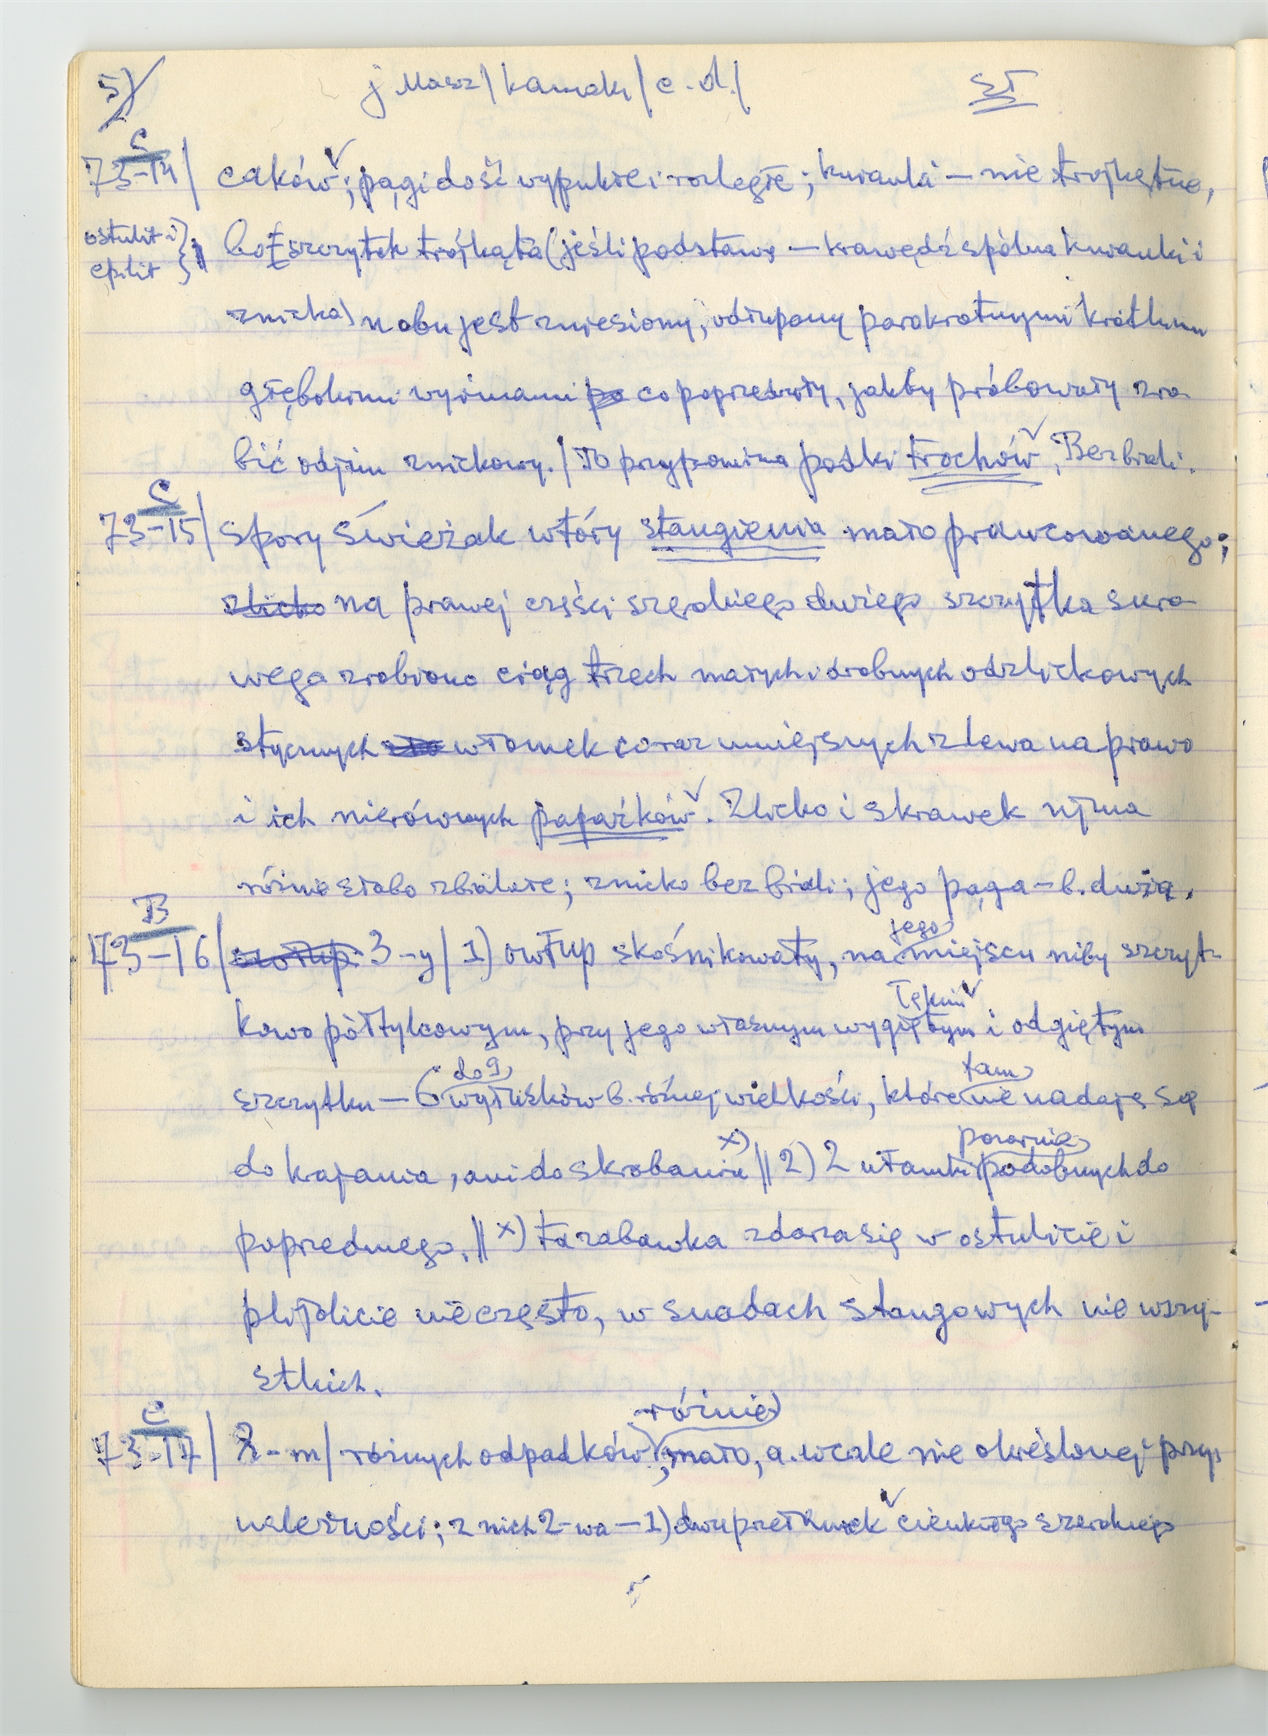 5) j. Masz/kamck/c.d./ SŁ
C
73-14/ caków; pągi dość wypukłe i rozległe; kuranki — nie trójkątne,
ostulit i epilit } bo szczytek trójkąta (jeśli podstawą — krawędź spólna kuranki i
znicka) u obu jest zniesiony, odłupany parokrotnymi krótkimi
głębokimi wyrwami po co poprzedziły, jakby próbowały zro-
bić odjem znickowy. / To przypomina pośki trochów. Bez brali.
C
73-15/ spory świeżak wtóry stangienia mało pracowanego;
zlicko na prawej części szerokiego dużego szczytka suro-
wego zrobiono ciąg trzech małych i drobnych odzlickowych
stycznych włomek coraz mniejszych z lewa na prawo
i ich nierównych papaźków. Zlicko i skrawek ujma
różnie słabo zbielałe; znicko bez brali; jego pąga — b. duża.
B
73-16/ owłup 3-y/ 1) owłup skośnikowaty, na jego miejscu niby szczyt-
kowo półtylcowym, przy jego własnym wygiętym tękim i odgiętym
szczytku — 6 do 9 wyłusków b. różnej wielkości, które tam nie nadają się
do krajania, ani do skrobania x) // 2) 2 ułamki pozornie podobnych do
poprzedniego. // x) ta zabawka zdarza się w ostulicie i
plitolicie nieczęsto, w snadach stangowych nie wszy-
stkich.
C
73-17/ 2-m/ różnych odpadków; różnie mało, a. wcale nie określonej przy-
należności; z nich 2-wa — 1) dwuprzełamek cienkiego szerokiego
5